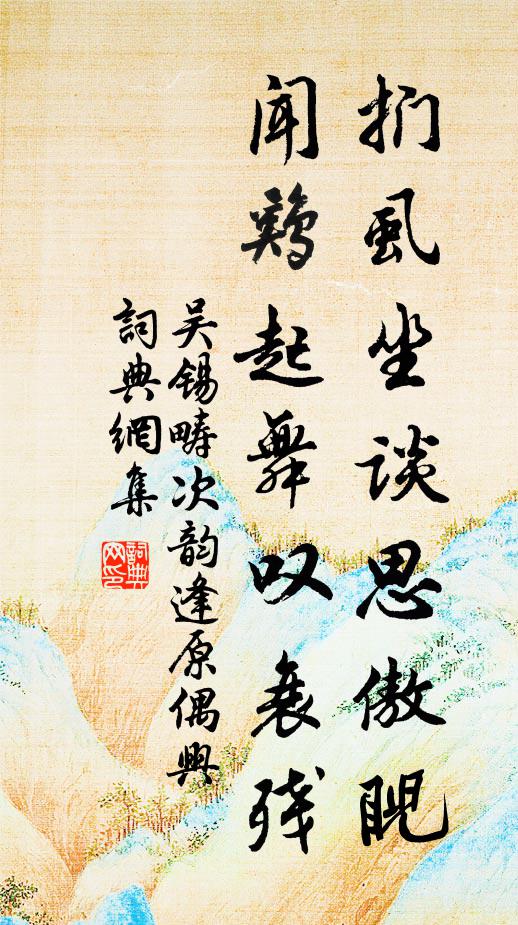 扪虱坐谈思傲睨
闻鸡起舞叹衰残
吴锡畴次韵逢原偶興
詞典網集
詞典网印